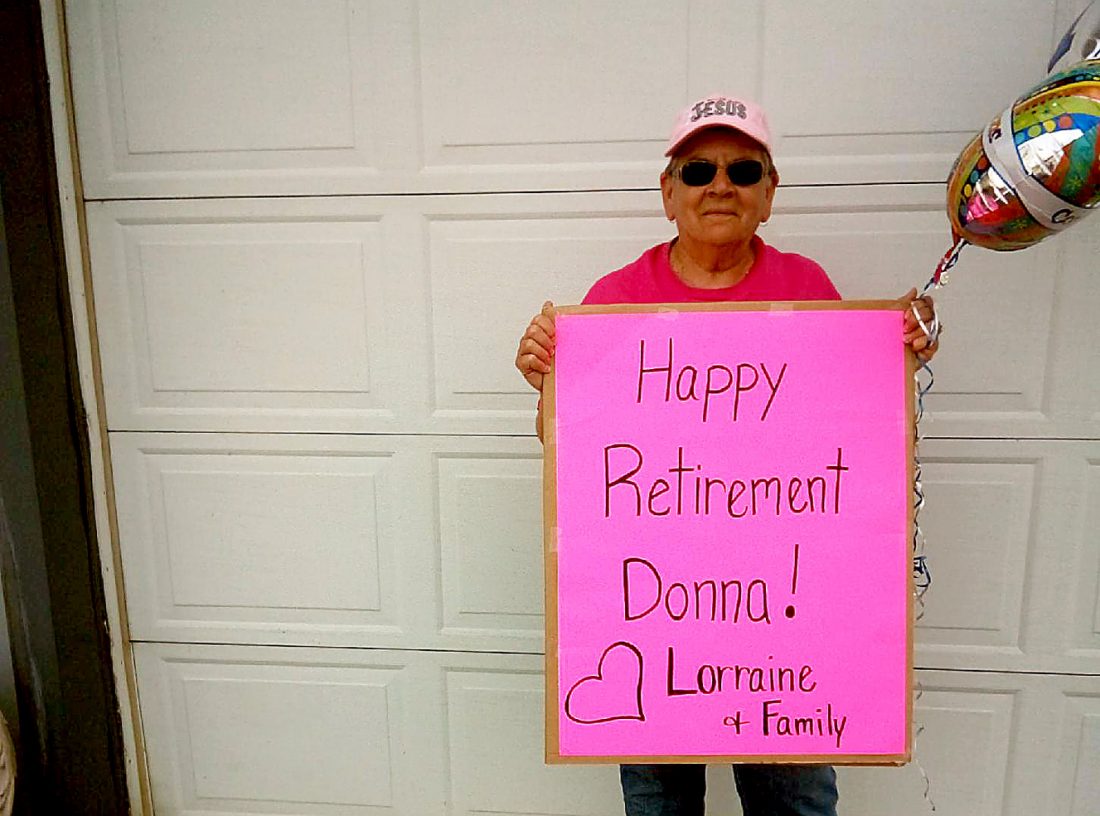 JESUS
Happy
Retirement
Donna!
Lorraine
& Family